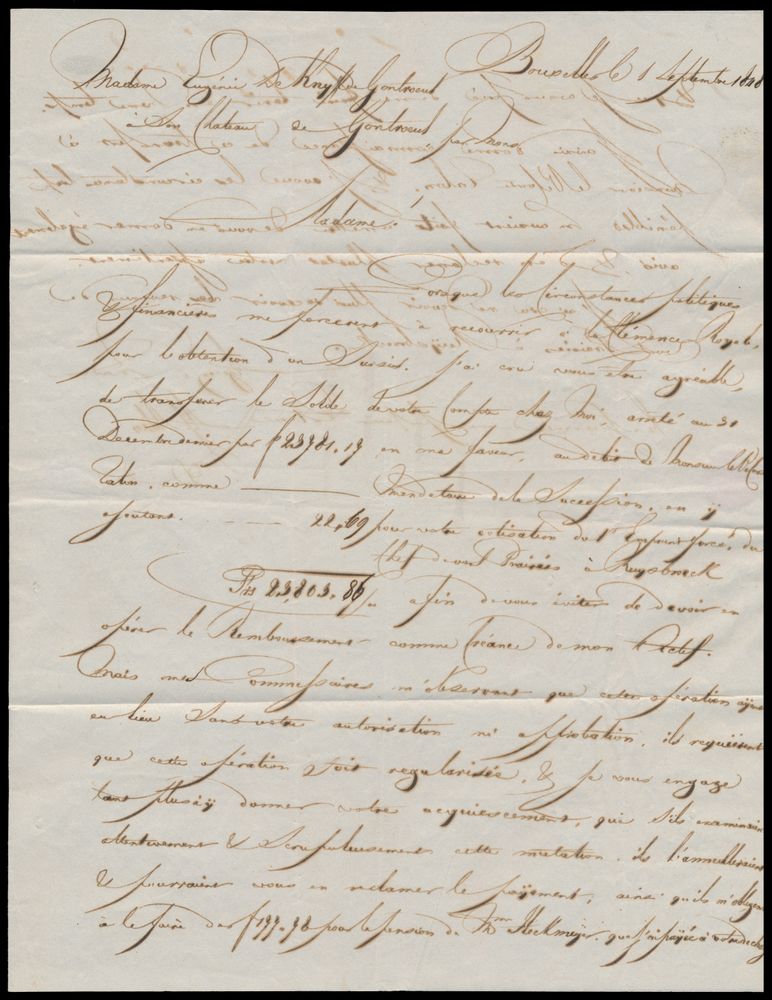 Bruxelles le 1 Septembre 1848
Madame Eugénie de Knyff de Gontroeul
à Son Chateau de Gontroeul, par Mons
Madame!
Lorsque les Circonstances politiques
& financières me forcerent à recourrir à la Clémence Royale,
pour l'obtention d'un Sursis. j'ai cru vous être agréable,
de transferer le Solde de votre Compte chez Moi, arrêté au 31
Decembre dernier par f 23781.17 en ma faveur, au débit de Monsieur
comme Mandataire de la Succession, en y
ajoutant 22,69 pour votre cotisation du 1r Emprunt forcé, du
chef de vos Prairies à Ruysbroeck
Fs 23,803.86 afin de vous éviter de devoir en
opérer le Remboursement comme Créance de mon Actif.
Mais mes Commissaires m'observant que cette opération ayant
eu lieu Sans votre autorisation ni approbation, ils requièrent
que cette opération soit regularisée, & je vous engage
tant plus à y donner votre acquiescement, que S'ils examinaient
attentivement & Scrupuleusement cette mutation, ils l'annulleraient
& pourraient vous en reclamer le payement, ainsi qu'ils m'obligent
à le faire des f 199.98 pour la pension de Mme Steckmeyer, que j'ai payée à votre